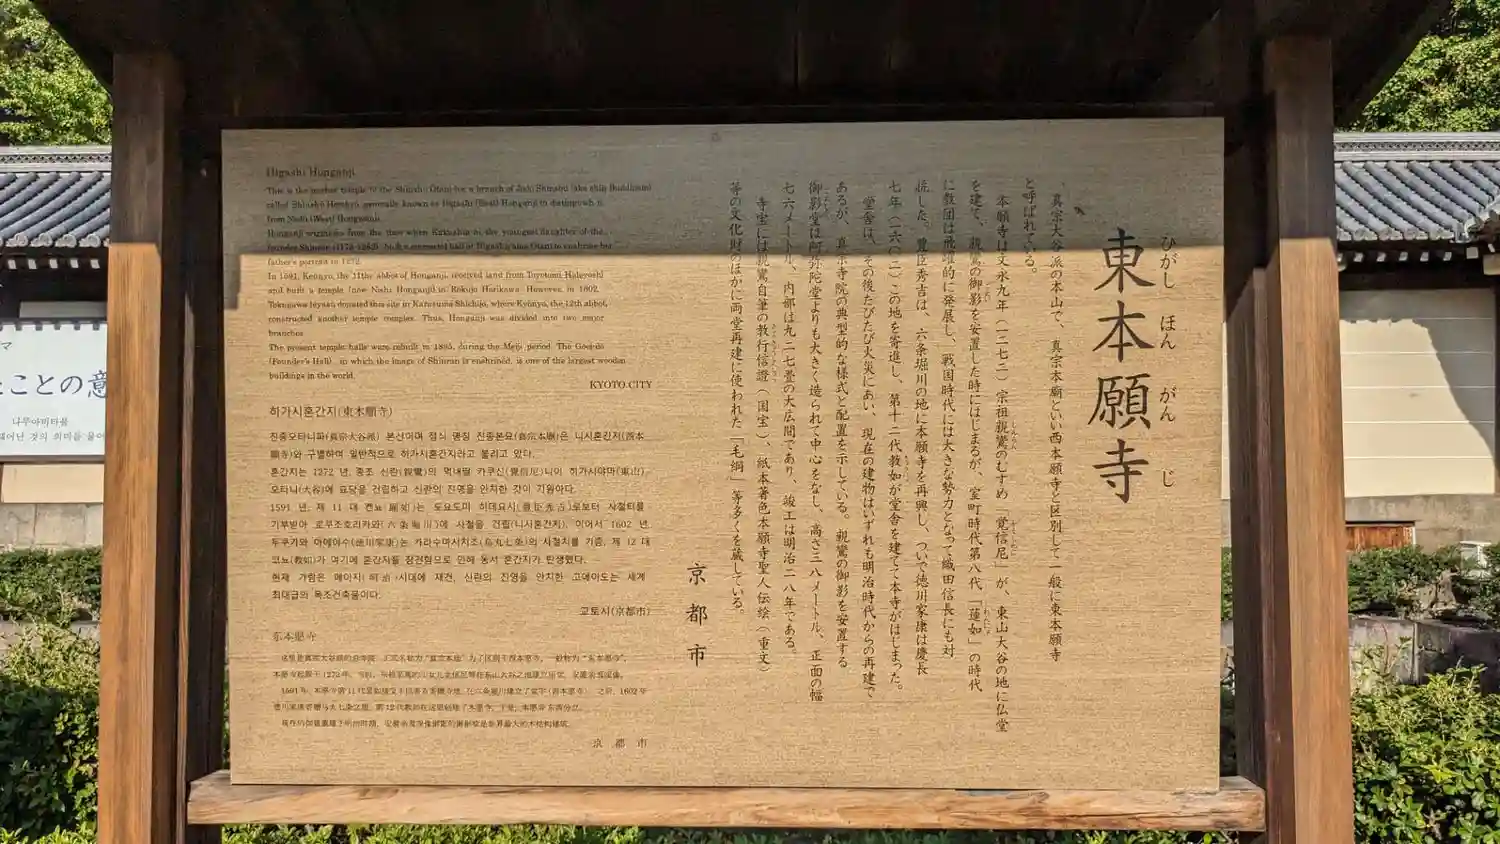 東本願寺
ひがし ほん がん じ
真宗大谷派の本山で、真宗本廟といい西本願寺と区別して一般に東本願寺
と呼ばれている。
本願寺は文永九年(一二七二)宗祖親鸞のむすめ「覚信尼」が、東山大谷の地に仏堂
を建て、親鸞の御影を安置した時にはじまるが、室町時代第八代「蓮如」の時代
に教団は飛躍的に発展し、戦国時代には大きな勢力となって織田信長にも対
抗した。豊臣秀吉は、六条堀川の地に本願寺を再興し、ついで徳川家康は慶長
七年(一六〇二)この地を寄進し、第十二代教如が堂舎を建てて本寺がはじまった。
堂舎は、その後たびたび火災にあい、現在の建物はいずれも明治時代からの再建で
あるが、真宗寺院の典型的な様式と配置を示している。親鸞の御影を安置する
御影堂は阿弥陀堂よりも大きく造られて中心をなし、高さ三八メートル、正面の幅
七六メートル、内部は九二七畳の大広間であり、竣工は明治二八年である。
寺宝には親鸞自筆の教行信證(国宝)、紙本著色本願寺聖人伝絵(重文)
等の文化財のほかに両堂再建に使われた「毛綱」等多くを蔵している。
京都市
Higashi Honganji
This is the mother temple to the Shinshu Otani-ha a branch of Jodo Shinshu
called Shinshu Honbyo, generally known as Higashi (East) Honganji to distinguish it
from Nishi (West) Honganji.
Honganji originates from the time when Kakushin-ni, the youngest daughter of the
founder Shinran (1173-1262), built a memorial hall at Higashiyama Otani to enshrine her
father's portrait in 1272.
In 1591, Kennyo, the 11th abbot of Honganji, received land from Toyotomi Hideyoshi
and built a temple (now Nishi Honganji) in Rokujo Horikawa. However, in 1602,
Tokugawa Ieyasu donated this site in Karasuma Shichijo, where Kyonyo, the 12th abbot,
constructed another temple complex. Thus, Honganji was divided into two major
branches.
The present temple halls were rebuilt in 1895, during the Meiji period. The Goei-do
(Founder's Hall), in which the image of Shinran is enshrined, is one of the largest wooden
buildings in the world.
KYOTO CITY
히가시혼간지(東本願寺)
진종오타니파(眞宗大谷派) 본산이며 정식 명칭 진종본묘(眞宗本廟)은 니시혼간지(西本
願寺)와 구별하여 일반적으로 히가시혼간지라고 불리고 있다.
혼간지는 1272 년, 종조 신란(親鸞)의 막내딸 카쿠신(覺信尼)니이 히가시야마(東山)
오타니(大谷)에 묘당을 건립하고 신란의 진영을 안치한 것이 기원이다.
1591 년, 제 11 대 켄뇨(顯如)는 도요도미 히데요시(豊臣秀吉)로부터 사절터를
기부받아 로쿠조호리카와(六条堀川)에 사절을 건립(니시혼간지), 이어서 1602 년,
두쿠가와 이에야수(徳川家康)는 카라수마시치조(烏丸七条)의 사절지를 기증, 제 12 대
쿄뇨(敎如)가 여기에 혼간지를 창건함으로 인해 동서 혼간지가 탄생했다.
현재 가람은 메이지(明治)시대에 재건, 신란의 진영을 안치한 고에이도는 세계
최대급의 목조건축물이다.
교토시(京都市)
东本愿寺
京 都 市
マ
たことの意
나무아미타불